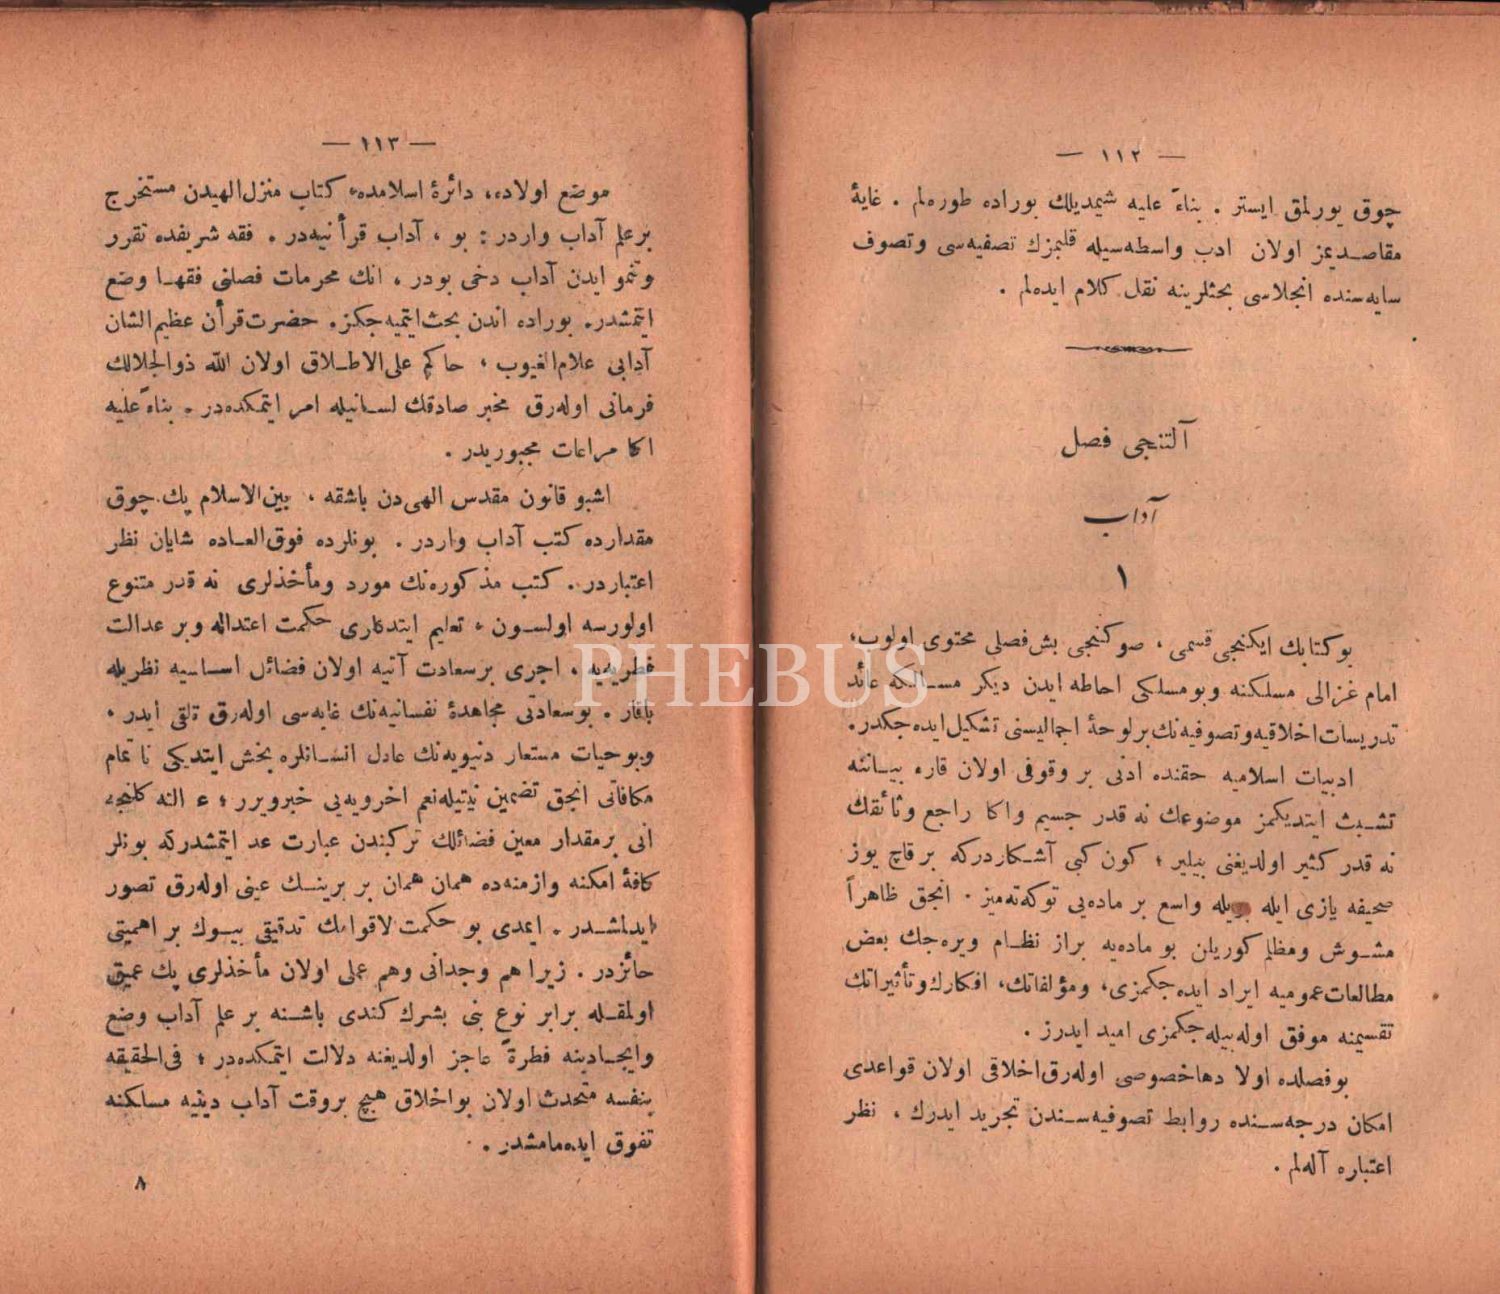 — ١١٢ —
چوق يورلمق ايستر . بناءً عليه شيمديلك بوراده طوره‌لم . غايهٔ
مقاصديمز اولان ادب واسطه‌سيله قلبمزك تصفيه‌سى وتصوف
سايه‌سنده انجلاسى بحثلرينه نقل كلام ايده‌لم .
آلتنجى فصل
آداب
١
بوكتابك ايكنجى قسمى ، صوكنجى بش فصلى محتوى اولوب،
امام غزالى مسلكنه وبومسلكى احاطه ايدن ديكر مسالكه عائد
تدريسات اخلاقيه وتصوفيه‌نك برلوحهٔ اجماليسنى تشكيل ايده‌جكدر.
ادبيات اسلاميه حقنده ادنى بر وقوفى اولان قارء بياننه
تشبث ايتديكمز موضوعك نه قدر جسيم واكا راجع وثائقك
نه قدر كثير اولديغنى بيلير ؛ كون كبى آشكاردركه بر قاچ يوز
صحيفه يازى ايله بويله واسع بر ماده‌يى توكه‌ته‌ميز . انجق ظاهراً
مشوش ومظلم كوريلن بو ماده‌يه براز نظام ويره‌جك بعض
مطالعات عموميه ايراد ايده‌جكمزى، ومؤلفاتك، افكارك وتأثيراتك
تقسيمنه موفق اوله‌بيله‌جكمزى اميد ايدرز .
بوفصلده اولا دهاخصوصى اوله‌رق اخلاقى اولان قواعدى
امكان درجه‌سنده روابط تصوفيه‌سندن تجريد ايدرك ، نظر
اعتباره آله‌لم .
— ١١٣ —
موضع اولاده، دائرهٔ اسلامده، كتاب منزل الهيدن مستخرج
برعلم آداب واردر : بو ، آداب قرأنيه‌در . فقه شريفده تقرر
وتنمو ايدن آداب دخى بودر ، انك محرمات فصلنى فقها وضع
ايتمشدر. بوراده اندن بحث ايتميه‌جكز. حضرت قرأن عظيم الشان
آدابى علام الغيوب ، حاكم على الاطلاق اولان الله ذوالجلالك
فرمانى اوله‌رق مخبر صادقك لسانيله امر ايتمكده‌در . بناءً عليه
اكا مراعات مجبوريدر .
اشبو قانون مقدس الهى‌دن باشقه ، بين الاسلام پك چوق
مقدارده كتب آداب واردر . بونلرده فوق العاده شايان نظر
اعتباردر . كتب مذكوره‌نك مورد ومأخذلرى نه قدر متنوع
اولورسه اولسون ، تعليم ايتدكلرى حكمت اعتداله وبر عدالت
فطريه‌يه ، اجرى برسعادت آتيه اولان فضائل اساسيه نظريله
باقار . بوسعادتى مجاهدهٔ نفسانيه‌نك غايه‌سى اوله‌رق تلقى ايدر ،
وبوحيات مستعار دنيويه‌نك عادل انسانلره بخش ايتديكى ناتمام
مكافاتى انجق تضمين نيتيله نعم اخرويه‌يى خبرويرر ؛
انى برمقدار معين فضائلك تركبندن عبارت عد ايتمشدركه بونلر
كافهٔ امكنه وازمنه‌ده همان همان بر برينك عينى اوله‌رق تصور
ايدلمشدر . ايمدى بو حكمت لاقوامك تدقيقى بيوك بر اهميتى
حائزدر . زيرا هم وجدانى وهم عملى اولان مأخذلرى پك عميق
اولمقله برابر نوع بنى بشرك كندى باشنه بر علم آداب وضع
وايجادينه فطرةً عاجز اولديغنه دلالت ايتمكده‌در ؛ فى الحقيقه
بنفسه متحدث اولان بواخلاق هيچ بروقت آداب دينيه مسلكنه
تفوق ايده‌مامشدر .
٨
PHEBUS